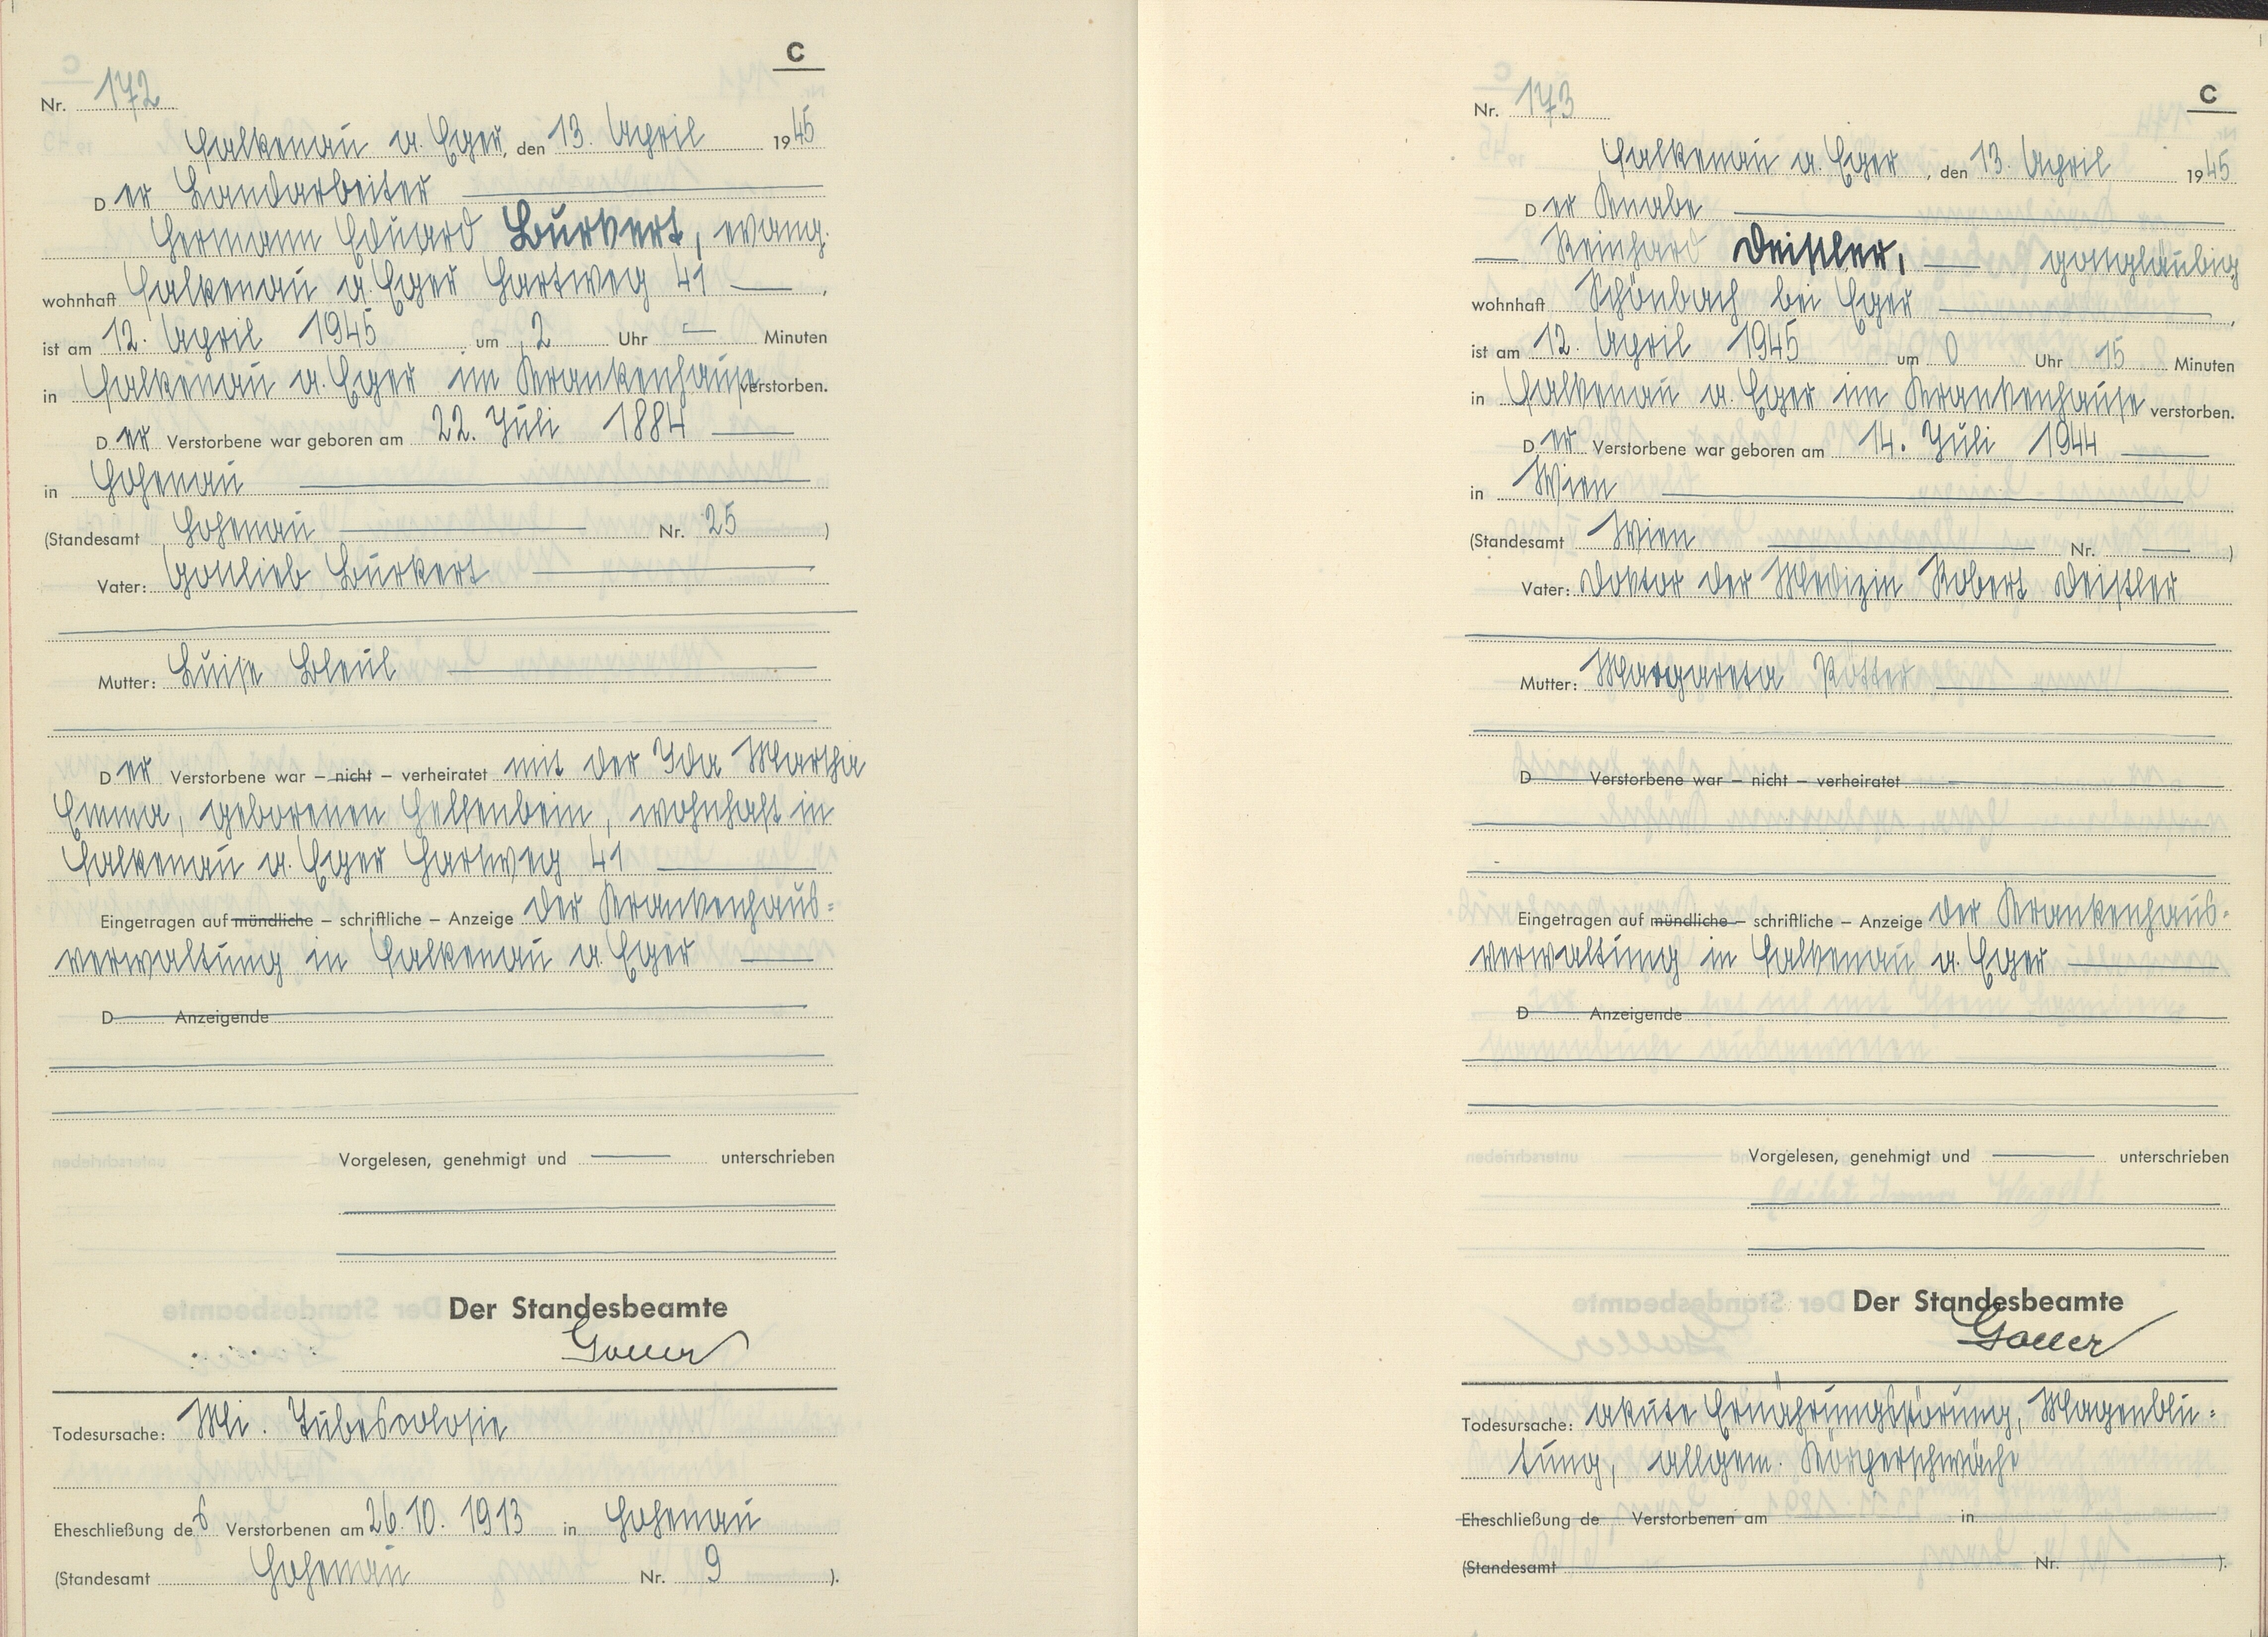 C
Nr. 172
Falkenau a. Eger, den 13. April 1945
Der Landarbeiter
Hermann Eduard Burkert, evang.
wohnhaft Falkenau a. Eger Hartweg 41 ,
ist am 12. April 1945 um 2 Uhr — Minuten
in Falkenau a. Eger im Krankenhause verstorben.
Der Verstorbene war geboren am 22. Juli 1884
in Hohenau
(Standesamt Hohenau Nr. 25 )
Vater: Gottlieb Burkert
Mutter: Luise Bleul
Der Verstorbene war – nicht – verheiratet mit der Ida Martha
Emma, geborenen Helfenbein, wohnhaft in
Falkenau a. Eger Hartweg 41
Eingetragen auf mündliche – schriftliche – Anzeige der Krankenhaus-
verwaltung in Falkenau a. Eger
D Anzeigende
Vorgelesen, genehmigt und — unterschrieben
Der Standesbeamte
Goller
Todesursache: Mi. Tuberkolosie
Eheschließung des Verstorbenen am 26.10.1913 in Hohenau
(Standesamt Hohenau Nr. 9 ).
C
Nr. 173
Falkenau a. Eger, den 13. April 1945
Der Knabe
— Reinhard Deistler, — gottgläubig
wohnhaft Schönbach bei Eger ,
ist am 12. April 1945 um 0 Uhr 15 Minuten
in Falkenau a. Eger im Krankenhause verstorben.
Der Verstorbene war geboren am 14. Juli 1944
in Wien
(Standesamt Wien Nr. — )
Vater: Doktor der Medizin Robert Deistler
Mutter: Margareta Rötter
D Verstorbene war – nicht – verheiratet
Eingetragen auf mündliche – schriftliche – Anzeige der Krankenhaus-
verwaltung in Falkenau a. Eger
D Anzeigende
Vorgelesen, genehmigt und — unterschrieben
Der Standesbeamte
Goller
Todesursache: akute Ernährungsstörung, Magenblu-
tung, allgem. Körperschwäche
Eheschließung de Verstorbenen am in
(Standesamt Nr. ).